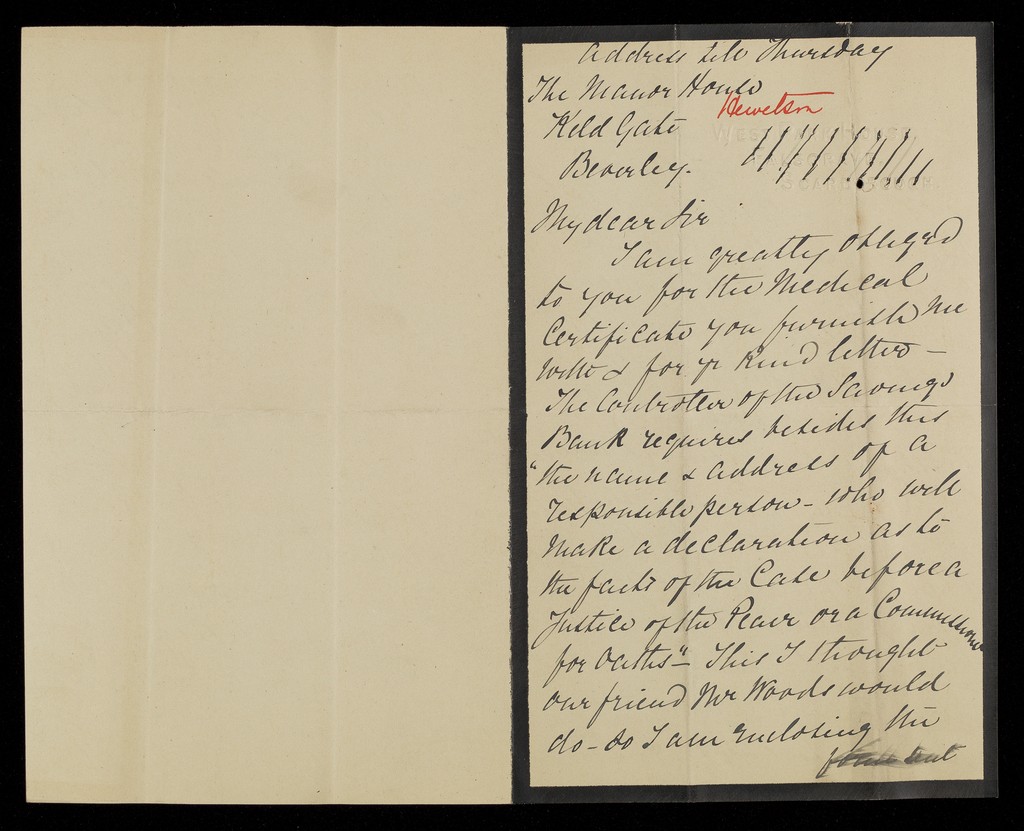 Address till Thursday
The Manor House
Hewetson
Keld Gate
Beverley.
My dear Sir
I am greatly obliged
to you for the Medical
Certificate you furnish me
with & for yr kind letter –
The Controller of the Savings
Bank requires besides this
"the name & address of a
responsible person – who will
make a declaration as to
the facts of the Case before a
Justice of the Peace or a Commissioner
for Oaths" – This I thought
our friend Mr Woods would
do – so I am enclosing the